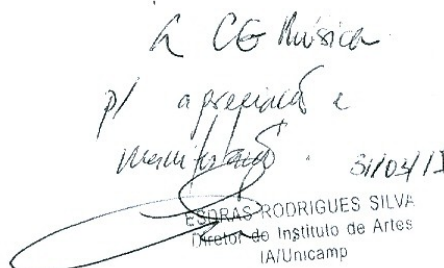 À CG Música
p/ apreciação e
manifestação. 31/03/1
ESDRAS RODRIGUES SILVA
Diretor do Instituto de Artes
IA/Unicamp